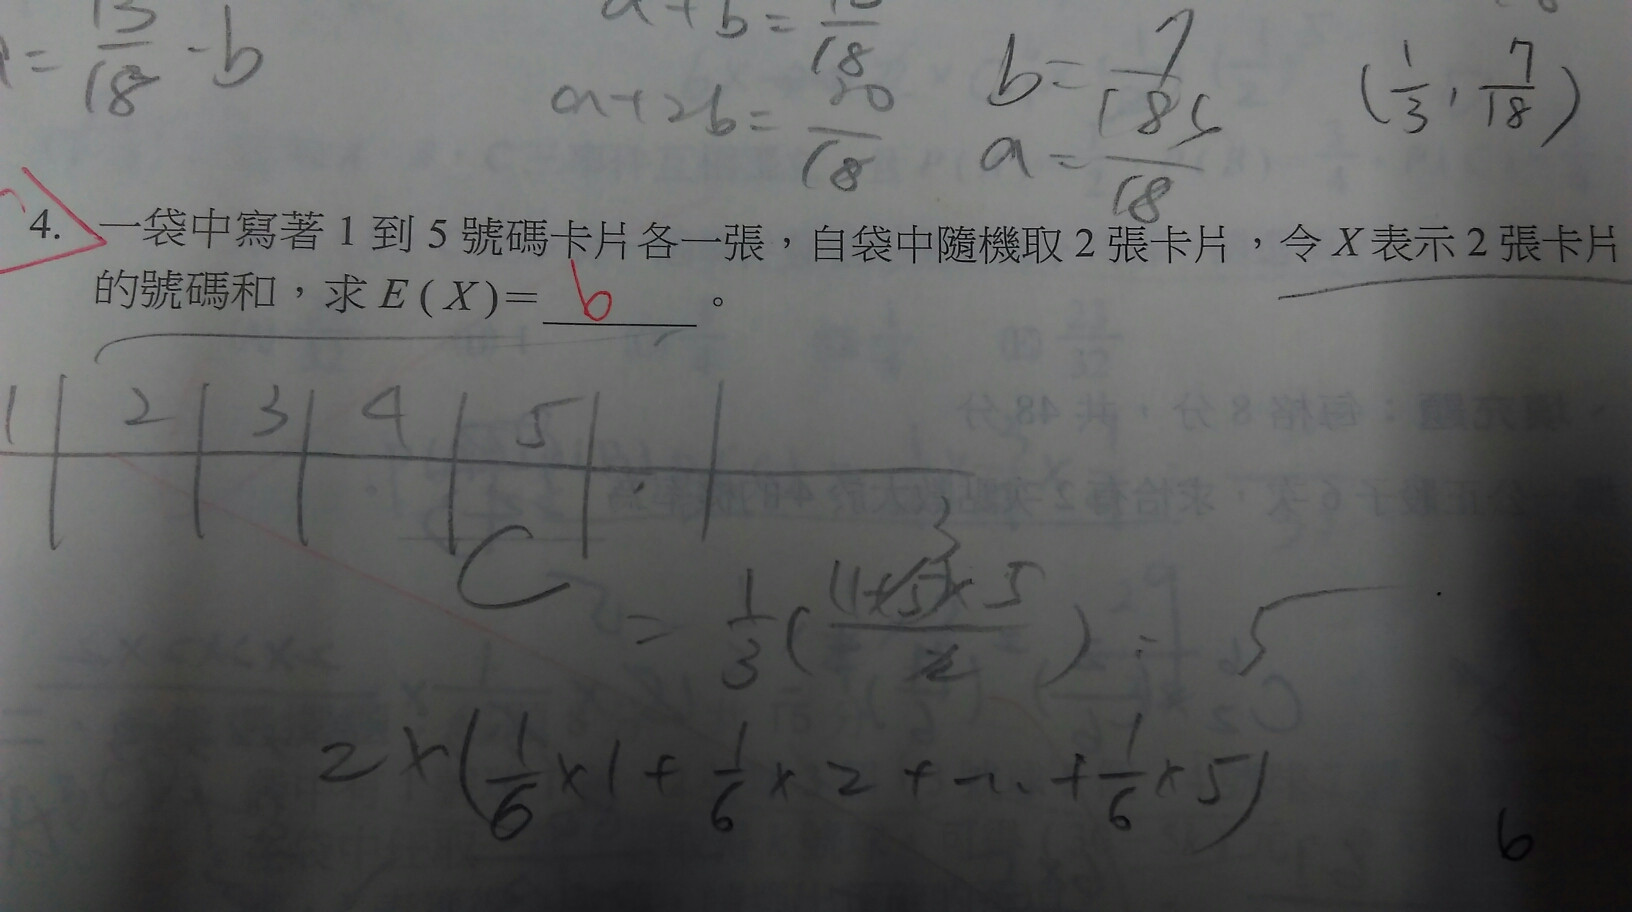 = 13/18 - b
a + b = 18
a + 2b = 20/18
b = 7/18
a = 5/18
(1/3, 7/18)
4. 一袋中寫著 1 到 5 號碼卡片各一張，自袋中隨機取 2 張卡片，令 X 表示 2 張卡片
的號碼和，求 E ( X )= 6 。
1 2 3 4 5
C
= 1/3 ( (1+5)×5 / 2 ) = 5
3
2 × ( 1/6 × 1 + 1/6 × 2 + ... + 1/6 × 5 )
6